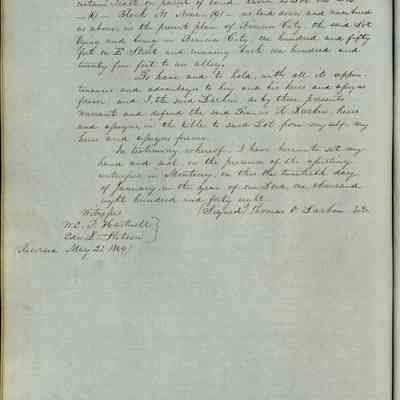 certain Lot or parcel of land known as Lot No. Six
—(6)— Block M. Nine—(9)— as laid down and numbered
as above, in the printed plan of Benicia City, the said Lot
lying and being in Benicia City one hundred and fifty
feet on E Street and running back one hundred and
twenty five feet to an alley.
To have and to hold, with all its appur-
tenances and advantages to him and his heirs and assigns
forever. and I the said Larkin do by these presents
warrant and defend the said Francis R. Larkin, heirs
and assigns, in the title to said Lot from myself my
heirs and assigns forever.
In testimony whereof, I have hereunto set my
hand and seal, in the presence of the subscribing
witnesses in Monterey, on this the twentieth day
of January, in the year of our Lord one thousand
eight hundred and forty eight.
Witnesses (Signed) Thomas O. Larkin
W. E. P. Hartnell }
Edwd L. Stetson }
Benicia May 21 1849